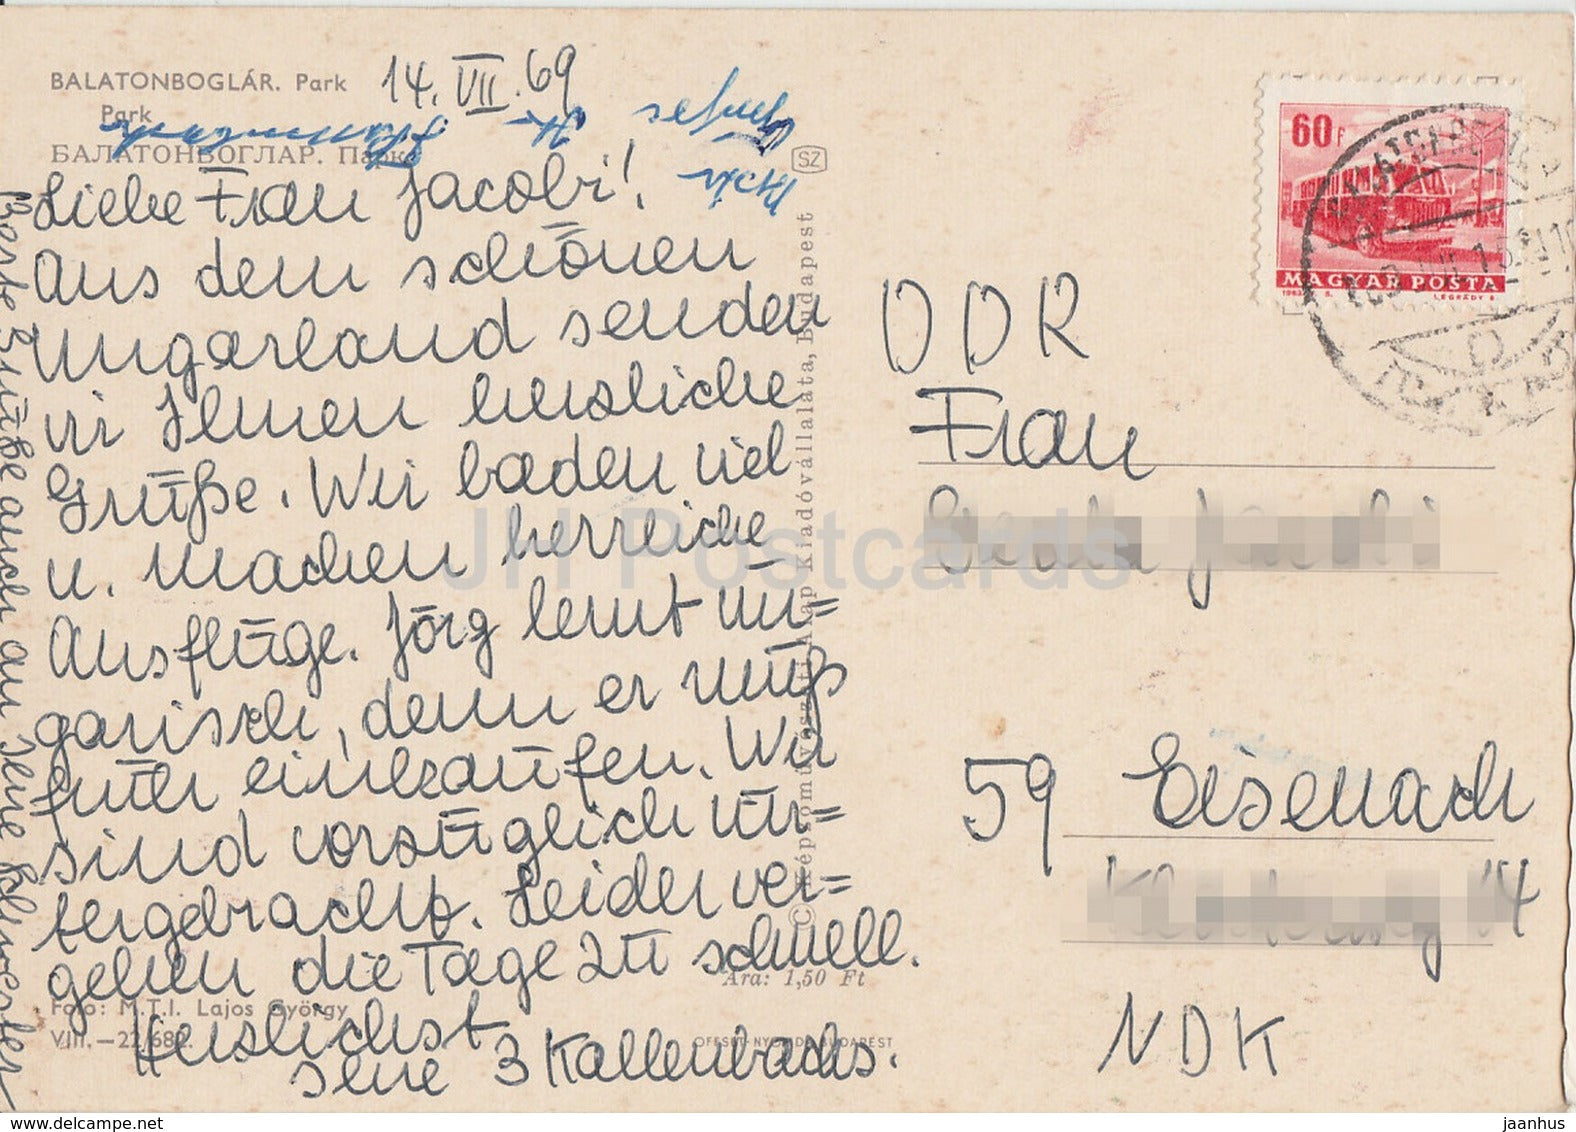 BALATONBOGLÁR. Park
Park
БАЛАТОНБОГЛАР. Парк
14. VII. 69
SZ
Liebe Frau Jacobi!
Aus dem schönen
Ungarland senden
wir Ihnen herzliche
Grüße. Wir baden viel
u. machen herrliche
Ausflüge. Jörg lernt un=
garisch, denn er muß
früh einkaufen. Wir
sind vorzüglich un=
tergebracht. Leider ver=
gehen die Tage zu schnell.
Herzlichst
Ihre 3 Kallenbachs.
Beste Grüße auch an Ihre Schwester
Foto: M.T.I. Lajos György
VIII.—22/682.
Ára: 1,50 Ft
OFFSET-NYOMDA BUDAPEST
© Képzőművészeti Alap Kiadóvállalata, Budapest
60f
MAGYAR POSTA
1963
LÉGRÁDY S
DDR
Frau
59 Eisenach
14
NDK
JH Postcards
delcampe.net
jaanhus